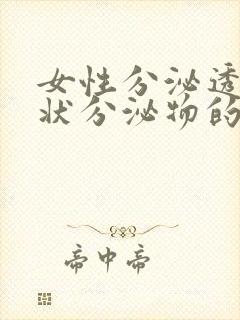 女性分泌透
状分泌物的
帝中帝